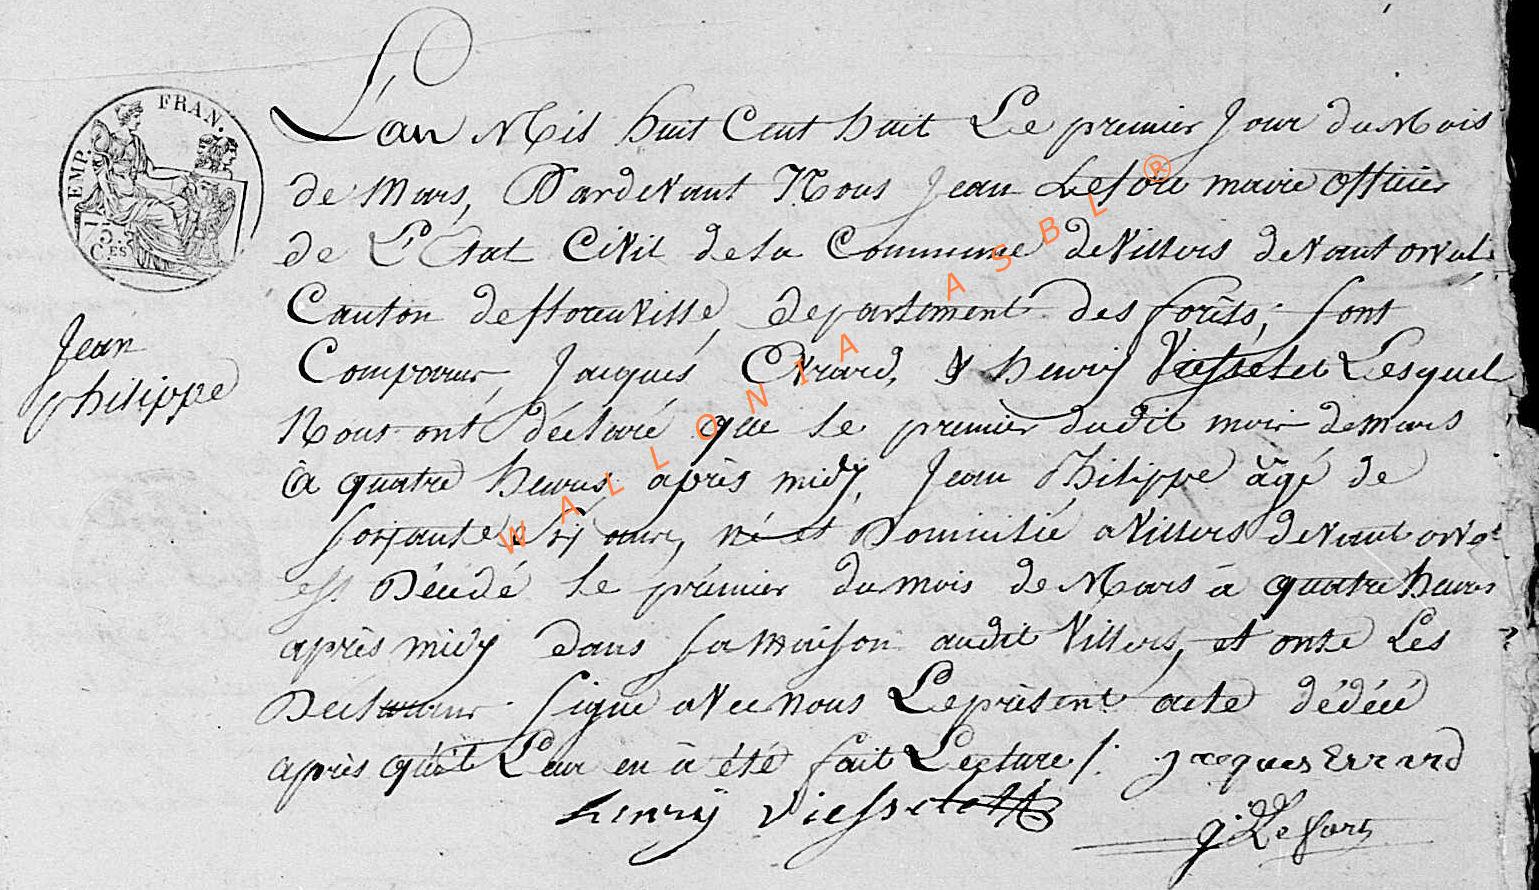 EMP. FRAN.
15
C.ES
Jean
philippe
L'an Mil huit Cent huit Le premier Jour du Mois
de Mars, Pardevant Nous Jean Lefort maire officier
de L'Etat Civil de la Commune de Villers devant orval
Canton de florenville, departement des forêts, sont
Comparus, Jacques Evrard, & henry Viesselet Lesquel
Nous ont déclaré que le premier dudit mois de mars
à quatre heures après midy, Jean Philippe âgé de
soixante ans, né et Domicilié a Villers devant orval
est Décédé le prémier du mois de Mars à quatre heures
après midy dans sa Maison audit Villers, et onte Les
Declarant signé avec nous Le présent acte dédécé
après qu'il Leur en à été fait Lecture /. jacques Evrard
henry viesselet
j. Lefort
WALLONIA ASBL ®